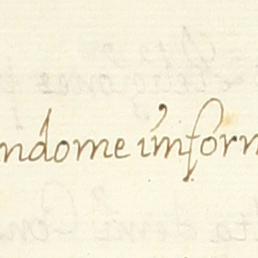 ndome imform